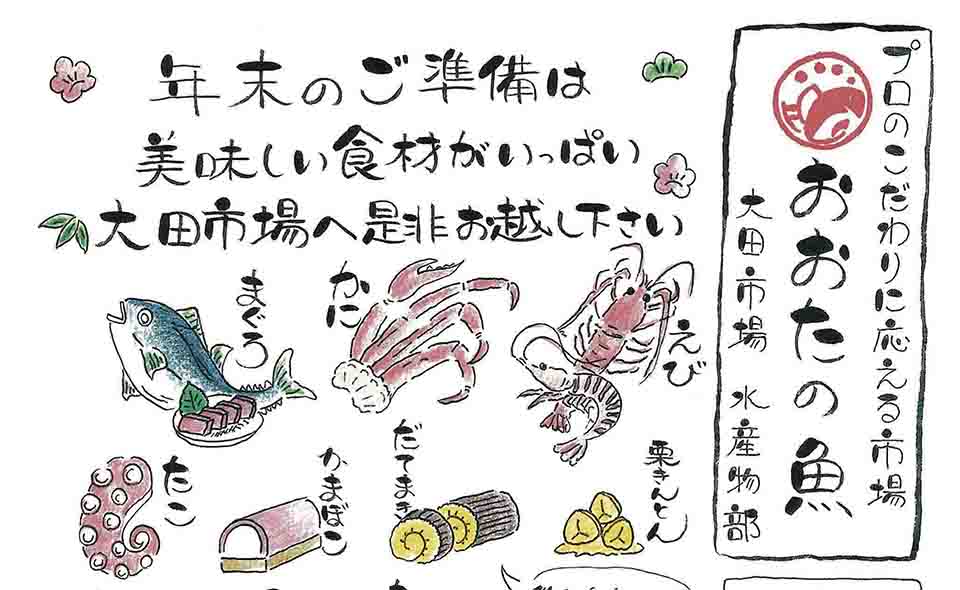 年末のご準備は
美味しい食材がいっぱい
大田市場へ是非お越し下さい
プロのこだわりに応える市場
おおたの魚
大田市場 水産物部
まぐろ
かに
えび
たこ
かまぼこ
だてまき
栗きんとん